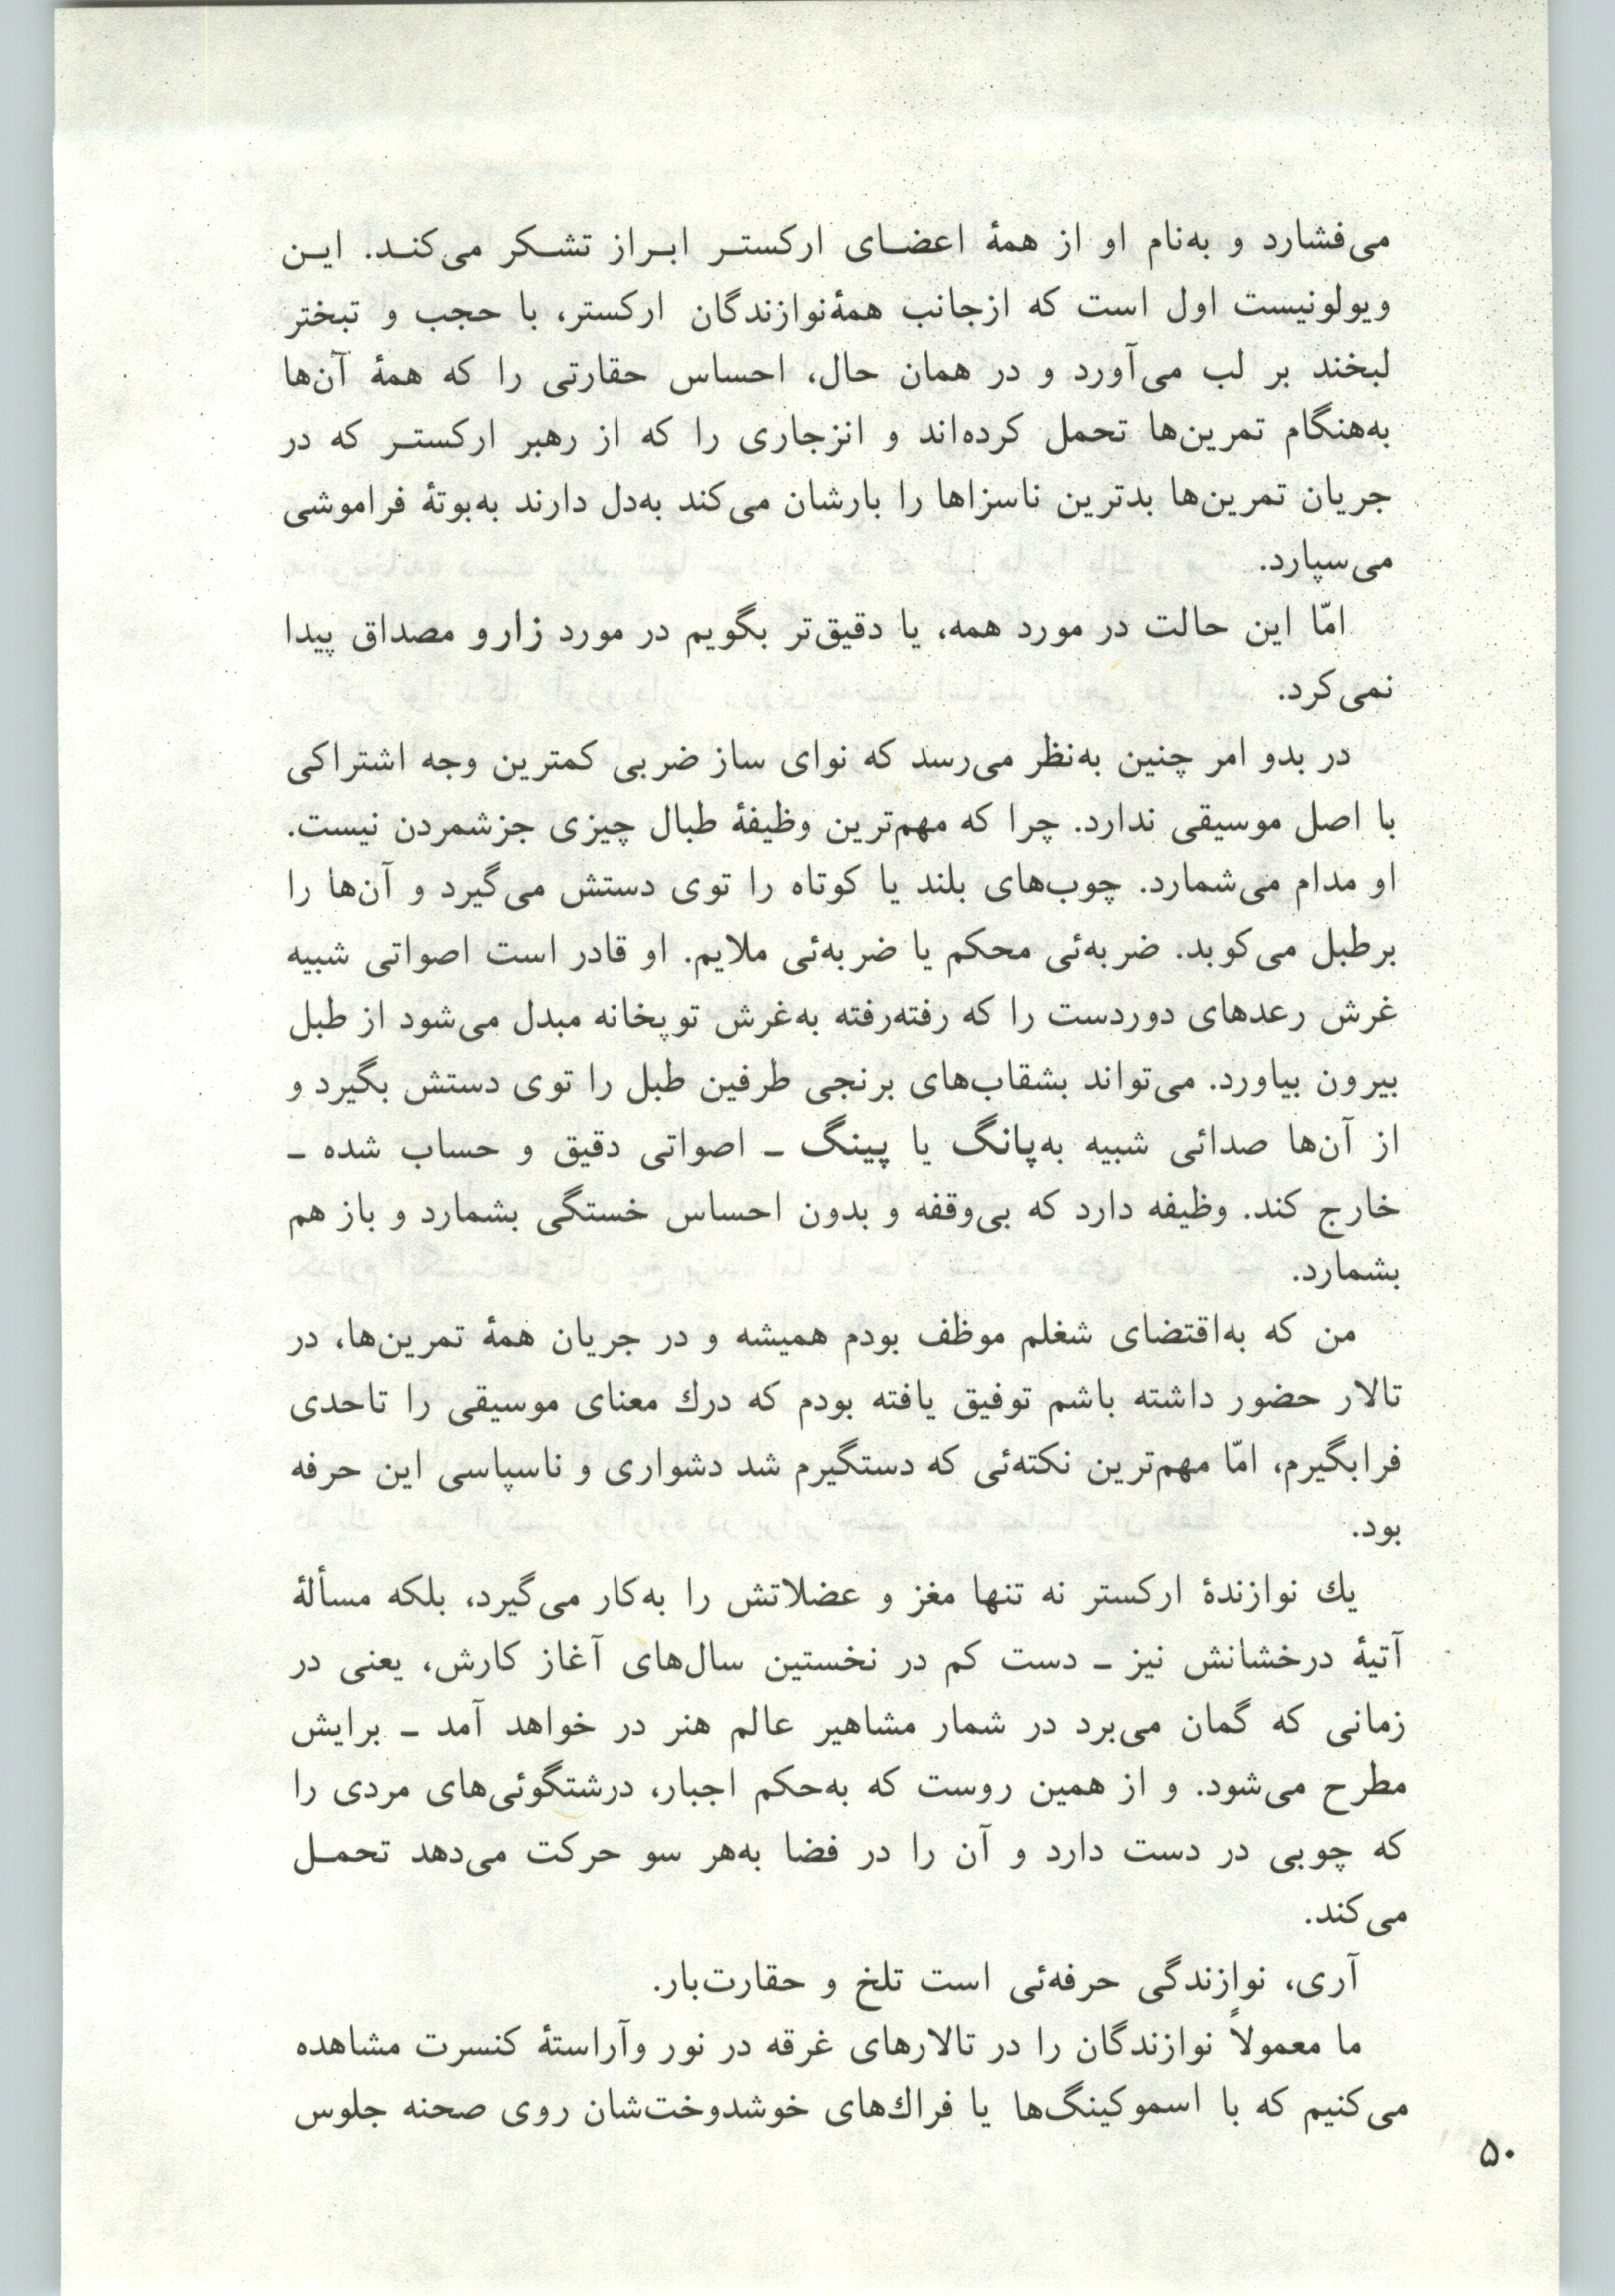 می‌فشارد و به‌نام او از همهٔ اعضـای ارکستـر ابـراز تشـکر می‌کنـد. ایـن
ویولونیست اول است که ازجانب همهٔ‌نوازندگان ارکستر، با حجب و تبختر
لبخند بر لب می‌آورد و در همان حال، احساس حقارتی را که همهٔ آن‌ها
به‌هنگام تمرین‌ها تحمل کرده‌اند و انزجاری را که از رهبر ارکستـر که در
جریان تمرین‌ها بدترین ناسزاها را بارشان می‌کند به‌دل دارند به‌بوتهٔ فراموشی
می‌سپارد.
امّا این حالت در مورد همه، یا دقیق‌تر بگویم در مورد زارو مصداق پیدا
نمی‌کرد.
در بدو امر چنین به‌نظر می‌رسد که نوای ساز ضربی کمترین وجه اشتراکی
با اصل موسیقی ندارد. چرا که مهم‌ترین وظیفهٔ طبال چیزی جزشمردن نیست.
او مدام می‌شمارد. چوب‌های بلند یا کوتاه را توی دستش می‌گیرد و آن‌ها را
برطبل می‌کوبد. ضربه‌ئی محکم یا ضربه‌ئی ملایم. او قادر است اصواتی شبیه
غرش رعدهای دوردست را که رفته‌رفته به‌غرش توپخانه مبدل می‌شود از طبل
بیرون بیاورد. می‌تواند بشقاب‌های برنجی طرفین طبل را توی دستش بگیرد و
از آن‌ها صدائی شبیه به‌پانگ یا پینگ ـ اصواتی دقیق و حساب شده ـ
خارج کند. وظیفه دارد که بی‌وقفه و بدون احساس خستگی بشمارد و باز هم
بشمارد.
من که به‌اقتضای شغلم موظف بودم همیشه و در جریان همهٔ تمرین‌ها، در
تالار حضور داشته باشم توفیق یافته بودم که درك معنای موسیقی را تاحدی
فرابگیرم، امّا مهم‌ترین نکته‌ئی که دستگیرم شد دشواری و ناسپاسی این حرفه
بود.
یك نوازندهٔ ارکستر نه تنها مغز و عضلاتش را به‌کار می‌گیرد، بلکه مسألهٔ
آتیهٔ درخشانش نیز ـ دست کم در نخستین سال‌های آغاز کارش، یعنی در
زمانی که گمان می‌برد در شمار مشاهیر عالم هنر در خواهد آمد ـ برایش
مطرح می‌شود. و از همین روست که به‌حکم اجبار، درشتگوئی‌های مردی را
که چوبی در دست دارد و آن را در فضا به‌هر سو حرکت می‌دهد تحمـل
می‌کند.
آری، نوازندگی حرفه‌ئی است تلخ و حقارت‌بار.
ما معمولاً نوازندگان را در تالارهای غرقه در نور وآراستهٔ کنسرت مشاهده
می‌کنیم که با اسموکینگ‌ها یا فراك‌های خوشدوخت‌شان روی صحنه جلوس
۵۰